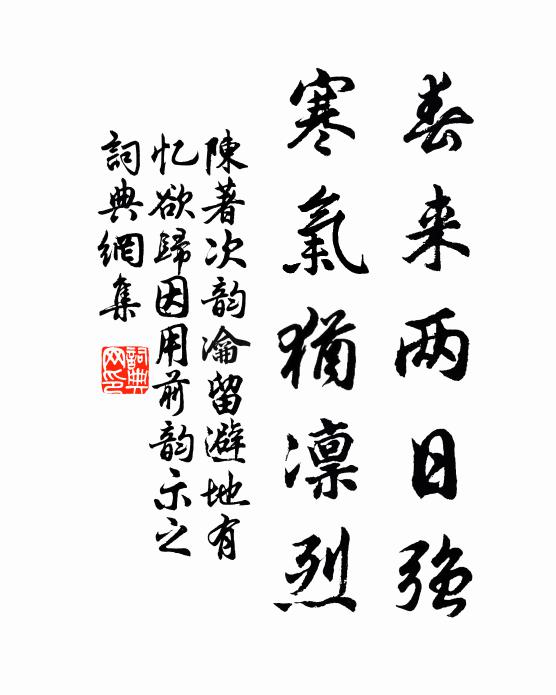 春来两日强
寒氣猶凛烈
陳著次韵瀹留避地有
忆欲歸因用前韵示之
詞典網集
詞典网印